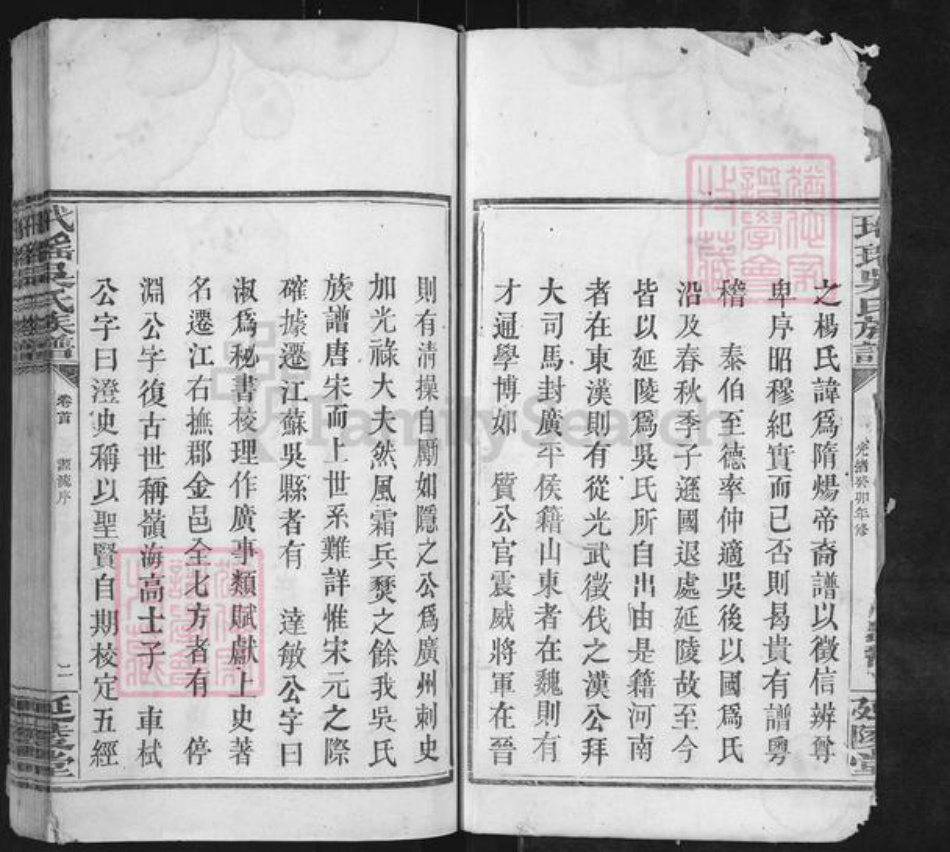 之楊氏諱爲隋煬帝裔譜以徵信辨尊
卑序昭穆紀實而已否則曷貴有譜粵
稽　泰伯至德率仲適吳後以國爲氏
沿及春秋季子遜國退處延陵故至今
皆以延陵爲吳氏所自出由是籍河南
者在東漢則有從光武徵伐之漢公拜
大司馬封廣平侯籍山東者在魏則有
才通學博如　質公官震威將軍在晉
光緒癸卯年修
吳氏族譜
延陵堂
則有清操自勵如隱之公爲廣州刺史
加光祿大夫然風霜兵燹之餘我吳氏
族譜唐宋而上世系難詳惟宋元之際
確據遷江蘇吳縣者有　達敏公字曰
淑爲秘書校理作廣事類賦獻上史著
名遷江右撫郡金邑全北方者有　停
淵公字復古世稱嶺海高士子　車栻
公字曰澄史稱以聖賢自期校定五經
吳氏族譜
卷首
源流序
二
延陵堂
FamilySearch